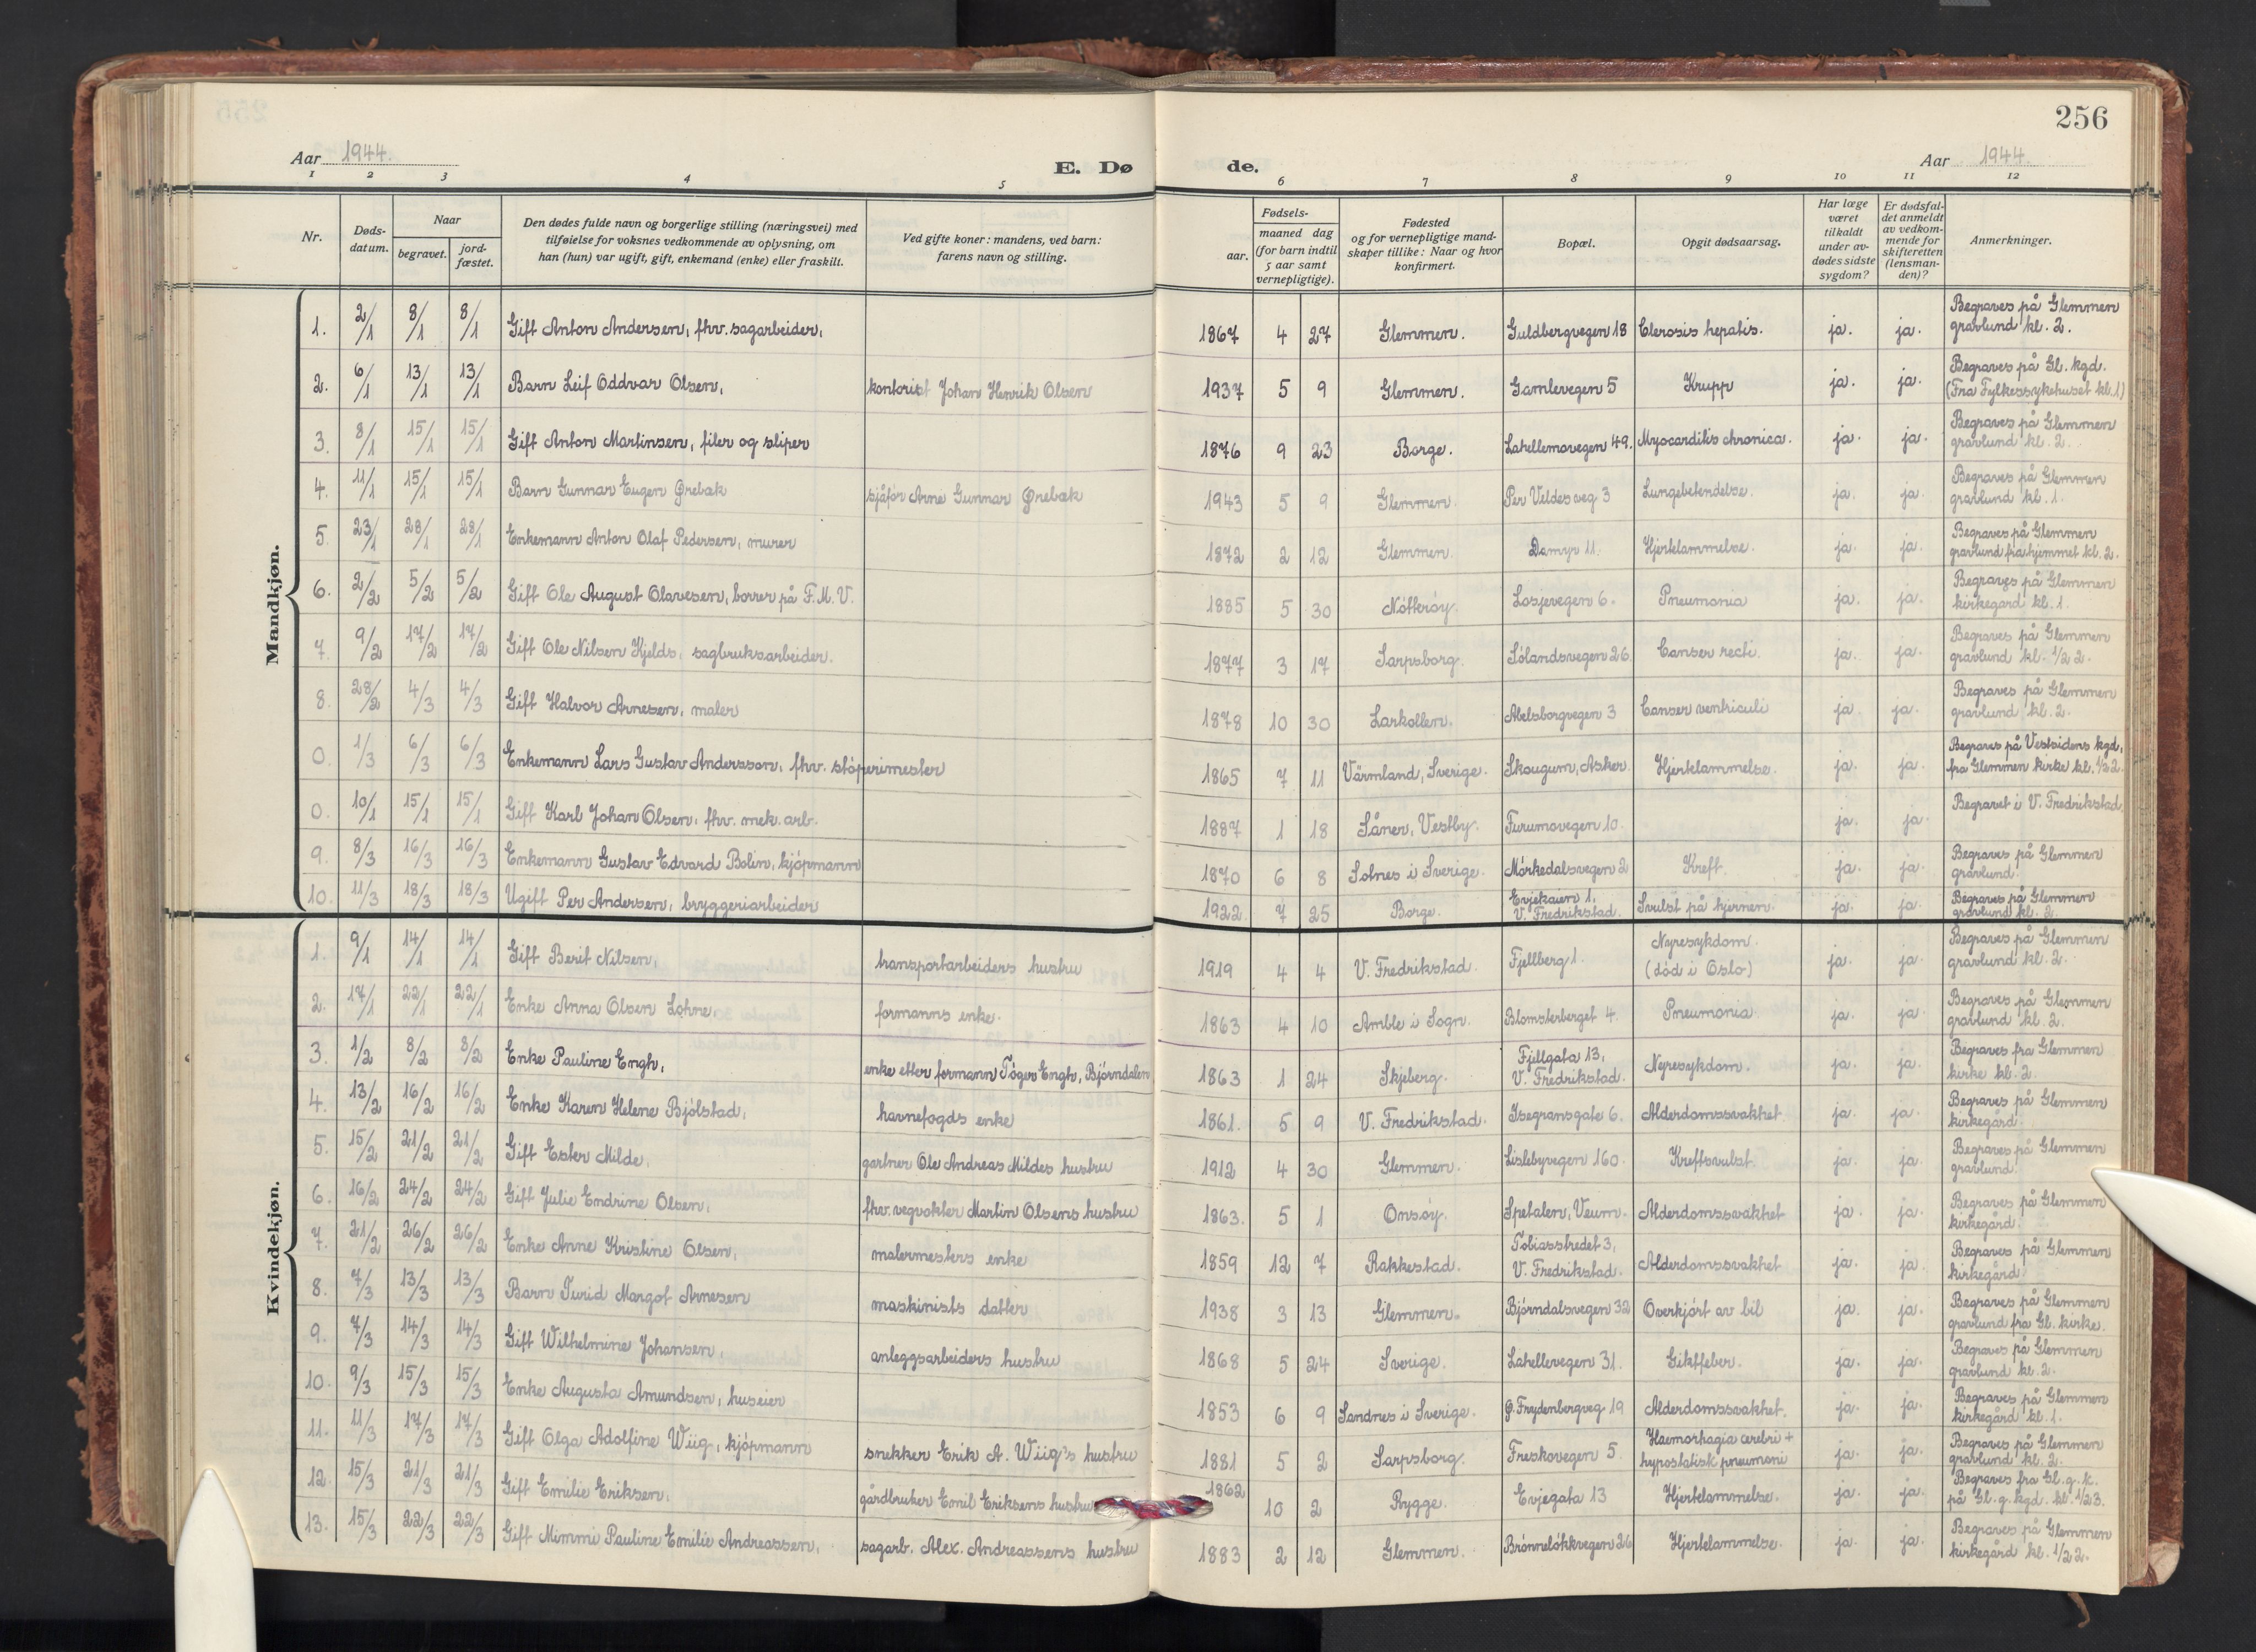 256
Aar 1944.
E. Dø
de.
Aar 1944.
1 2 3 4 5 6 7 8 9 10 11 12
Nr.
Døds-
datum.
Naar
begravet.
jord-
fæstet.
Den dødes fulde navn og borgerlige stilling (næringsvei) med
tilføielse for voksnes vedkommende av oplysning, om
han (hun) var ugift, gift, enkemand (enke) eller fraskilt.
Ved gifte koner: mandens, ved barn:
farens navn og stilling.
Fødsels-
aar.
maaned dag
(for barn indtil
5 aar samt
vernepligtige).
Fødested
og for vernepligtige mand-
skaper tillike: Naar og hvor
konfirmert.
Bopæl.
Opgit dødsaarsag.
Har læge
været
tilkaldt
under av-
dødes sidste
sygdom?
Er dødsfal-
det anmeldt
av vedkom-
mende for
skifteretten
(lensman-
den)?
Anmerkninger.
Mandkjøn.
1. 2/1 8/1 8/1 Gift Anton Andersen, fhv. sagarbeider. 1867 4 27 Glemmen. Guldbergvegen 18 Clerosis hepatis. ja. ja. Begraves på Glemmen
gravlund kl. 2.
2. 6/1 13/1 13/1 Barn Leif Oddvar Olsen, kontorist Johan Henrik Olsen 1937 5 9 Glemmen. Gamlevegen 5 Krupp ja. ja. Begraves på Gl. kgd.
(Fra Fylkessykehuset kl. 1)
3. 8/1 15/1 15/1 Gift Anton Martinsen, filer og sliper 1876 9 23 Borge. Lahellemovegen 49. Myocarditis chronica. ja. ja. Begraves på Glemmen
gravlund kl. 2.
4. 11/1 15/1 15/1 Barn Gunnar Eugen Ørebæk sjåfør Arne Gunnar Ørebæk 1943 5 9 Glemmen. Per Veldes veg 3 Lungebetendelse. ja. ja. Begraves på Glemmen
gravlund kl. 1.
5. 23/1 28/1 28/1 Enkemann Anton Olaf Pedersen, murer 1872 2 12 Glemmen. Damyr 11. Hjertelammelse. ja. ja. Begraves på Glemmen
gravlund fra hjemmet kl. 2.
6. 2/2 5/2 5/2 Gift Ole August Olavesen, borrer på F.M.V. 1885 5 30 Nøtterøy. Losjevegen 6. Pneumonia ja. ja. Begraves på Glemmen
kirkegård kl. 1.
7. 9/2 17/2 17/2 Gift Ole Nilsen Kjelds, sagbruksarbeider. 1877 3 17 Sarpsborg. Sølandsvegen 26. Canser recti. ja. ja. Begraves på Glemmen
gravlund kl. 1/2 2.
8. 28/2 4/3 4/3 Gift Halvor Arnesen, maler 1878 10 30 Larkollen. Abelsborgvegen 3 Canser ventriculi ja. ja. Begraves på Glemmen
gravlund kl. 2.
0. 1/3 6/3 6/3 Enkemann Lars Gustav Andersson, fhv. støperimester 1865 7 11 Värmland, Sverige. Skougum, Asker. Hjertelammelse. ja. ja. Begraves på Vestsidens kgd,
fra Glemmen kirke kl. 1/2 2.
0. 10/1 15/1 15/1 Gift Karl Johan Olsen, fhv. mek. arb. 1887 1 18 Såner, Vestby. Furumovegen 10. ja. ja. Begravet i V. Fredrikstad
9. 8/3 16/3 16/3 Enkemann Gustav Edvard Bolin, kjøpmann 1870 6 8 Solnes i Sverige. Mørkedalsvegen 2 Kreft. ja. ja. Begraves på Glemmen
gravlund.
10. 11/3 18/3 18/3 Ugift Per Andersen, bryggeriarbeider 1922. 7 25 Borge. Evjekaien 1,
V. Fredrikstad. Svulst på hjernen. ja. ja. Begraves på Glemmen
gravlund kl. 2.
Kvindekjøn.
1. 9/1 14/1 14/1 Gift Berit Nilsen, transportarbeiders hustru 1919 4 4 V. Fredrikstad. Fjellberg 1. Nyresykdom.
(død i Oslo) ja. ja. Begraves på Glemmen
gravlund kl. 2.
2. 17/1 22/1 22/1 Enke Anna Olsen Lohne, formanns enke. 1863 4 10 Amble i Sogn. Blomsterberget 4. Pneumonia. ja. ja. Begraves på Glemmen
gravlund kl. 2.
3. 1/2 8/2 8/2 Enke Pauline Engh, enke etter formann Tøger Engh, Bjørndalen 1863 1 24 Skjeberg. Fjellgata 13,
V. Fredrikstad. Nyresykdom. ja. ja. Begraves fra Glemmen
kirke kl. 2.
4. 13/2 16/2 16/2 Enke Karen Helene Bjølstad, havnefogds enke 1861. 5 9 V. Fredrikstad. Isegransgate 6. Alderdomssvakhet. ja. ja. Begraves på Glemmen
kirkegård.
5. 15/2 21/2 21/2 Gift Ester Milde, gartner Ole Andreas Mildes hustru 1912 4 30 Glemmen. Lislebyvegen 160. Kreftsvulst. ja. ja. Begraves på Glemmen
gravlund.
6. 16/2 24/2 24/2 Gift Julie Endrine Olsen, fhv. vegvokter Martin Olsens hustru 1863. 5 1 Onsøy. Spetalen, Veum. Alderdomssvakhet ja. ja. Begraves på Glemmen
kirkegård.
7. 21/2 26/2 26/2 Enke Anne Kristine Olsen, malermesters enke 1859 12 7 Rakkestad. Tobiasstredet 3,
V. Fredrikstad. Alderdomssvakhet ja. ja. Begraves på Glemmen
kirkegård.
8. 7/3 13/3 13/3 Barn Turid Margot Arnesen maskinists datter 1938 3 13 Glemmen. Bjørndalsvegen 32 Overkjørt av bil ja. ja. Begraves på Glemmen
gravlund fra Gl. kirke.
9. 7/3 14/3 14/3 Gift Wilhelmine Johansen, anleggsarbeiders hustru 1868 5 24 Sverige. Lahellevegen 31. Giktfeber. ja. ja. Begraves på Glemmen
gravlund kl. 2.
10. 9/3 15/3 15/3 Enke Augusta Amundsen, huseier 1853 6 9 Sandnes i Sverige. Ø. Frydenbergveg 19 Alderdomssvakhet. ja. ja. Begraves på Glemmen
kirkegård kl. 1.
11. 11/3 17/3 17/3 Gift Olga Adolfine Wiig, kjøpmann snekker Erik A. Wiig's hustru 1881 5 2 Sarpsborg. Freskovegen 5. Haemorhagia cerebri +
hypostatisk pneumoni ja. ja. Begraves på Glemmen
gravlund kl. 2.
12. 15/3 21/3 21/3 Gift Emilie Eriksen, gårdbruker Emil Eriksens hustru 1862 10 2 Rygge. Evjegata 13 Hjertelammelse. ja. ja. Begraves fra Gl. g. k.
på Gl. g. kgd. kl. 1/2 3.
13. 15/3 22/3 22/3 Gift Mimmi Pauline Emilie Andreassen, sagarb. Alex. Andreassens hustru 1883 2 12 Glemmen. Brønneløkkvegen 26 Hjertelammelse. ja. ja. Begraves på Glemmen
kirkegård kl. 1/2 2.